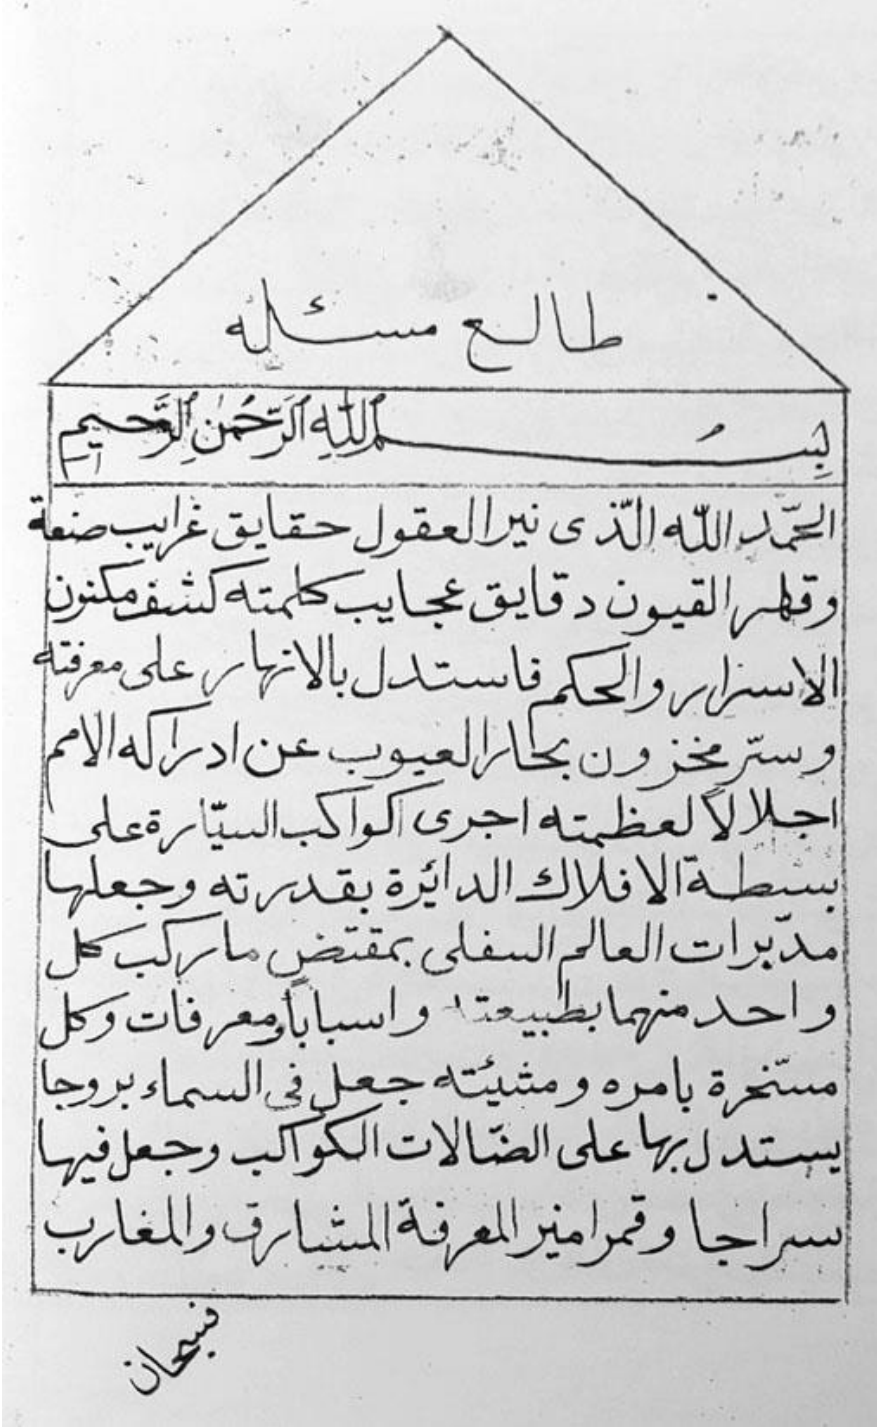 طالع مسئله
بِسْمِ اللّٰهِ الرَّحْمٰنِ الرَّحِيمِ
الحمّد اللّٰه الّذى نير العقول حقايق غرايب صنعة
وقهر القيون دقايق عجايب كلمته كشف مكنون
الاسرار والحكم فاستدل بالانهار على معرفته
وسرّ مخزون بحار العيوب عن ادراكه الامم
اجلالاً لعظمته اجرى كواكب السيّارة على
بسطة الافلاك الدائرة بقدرته وجعلها
مدّبرات العالم السفلى بمقتض ما ركب كل
واحد منهما بطبيعته واسباباً ومعرفات وكل
مسّخرة بامره ومشيئته جعل فى السماء بروجا
يستدل بها على الضّالات الكواكب وجعل فيها
سراجا وقمرا منير المعرفة المشارق والمغارب
فسبحان